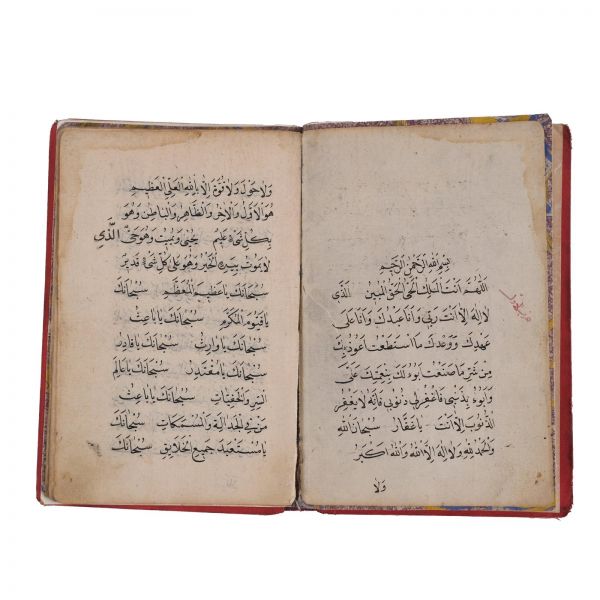 بسم الله الرحمن الرحيم
اللهم انت الملك الحي الحق المبين الذي
لا اله الا انت ربي وانا عبدك وانا على
عهدك ووعدك ما استطعت اعوذ بك
من شر ما صنعت ابوء لك بنعمتك علي
وابوء بذنبي فاغفر لي ذنوبي فانه لا يغفر
الذنوب الا انت يا غفار سبحان الله
والحمد لله ولا اله الا الله والله اكبر
ولا
ولا حول ولا قوة الا بالله العلي العظيم
هو الاول والاخر والظاهر والباطن وهو
بكل شيء عليم يحيي ويميت وهو حي الذي
لا يموت بيده الخير وهو على كل شيء قدير
سبحانك يا عظيم المعظم سبحانك
يا قيوم المكرم سبحانك يا باعث
سبحانك يا وارث سبحانك يا قادر
سبحانك يا مقتدر سبحانك يا عالم
السر والخفيات سبحانك يا باعث
من في الجدالة والمسمكات سبحانك
يا مستعبد جميع الخلايق سبحانك